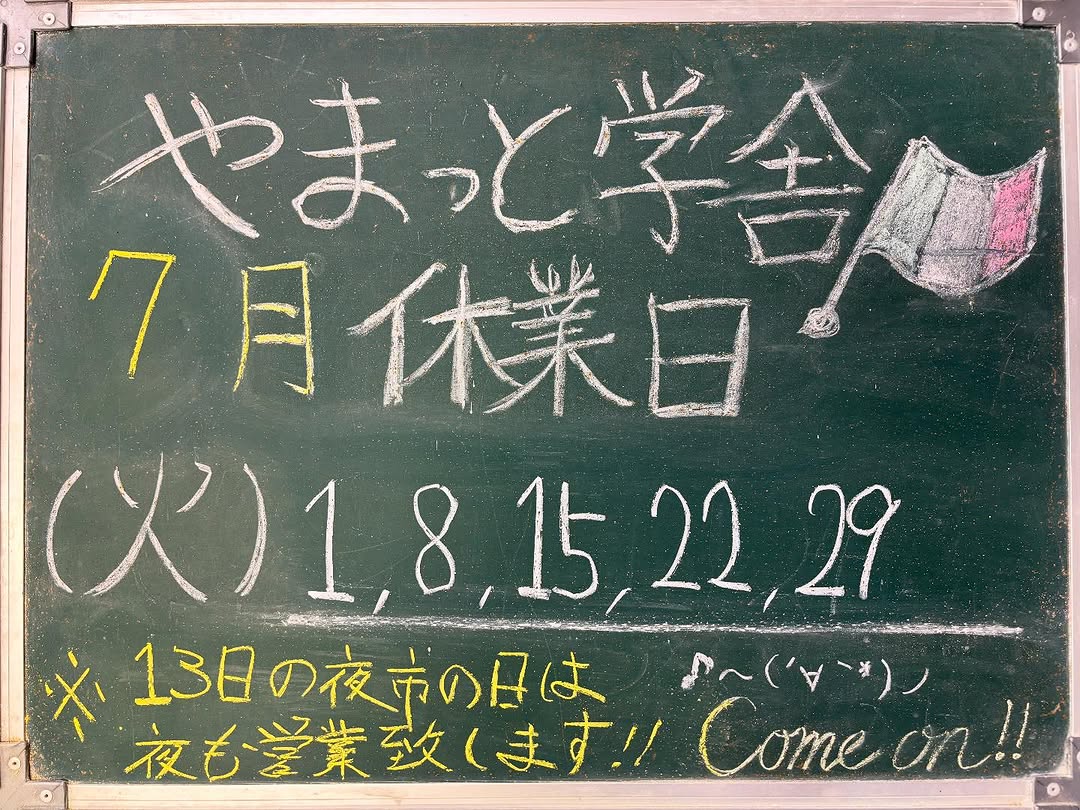 やまっと学舎
7月休業日
(火) 1, 8, 15, 22, 29
※ 13日の夜市の日は
夜も営業致します!!
♪〜(´∀`*)ノ
Come on!!